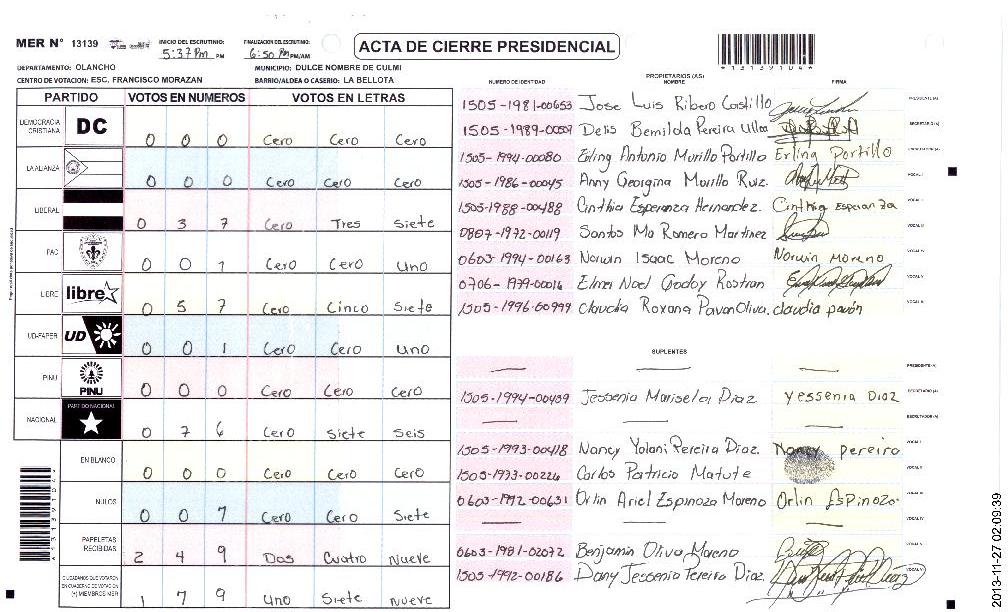 MER N° 13139 INICIO DEL ESCRUTINIO: 5:37 Pm PM FINALIZACION DEL ESCRUTINIO: 6:50 Pm PM/AM ACTA DE CIERRE PRESIDENCIAL
*1313910 4*
DEPARTAMENTO: OLANCHO MUNICIPIO: DULCE NOMBRE DE CULMI
CENTRO DE VOTACION: ESC. FRANCISCO MORAZAN BARRIO/ALDEA O CASERIO: LA BELLOTA
PARTIDO VOTOS EN NUMEROS VOTOS EN LETRAS
DEMOCRACIA CRISTIANA DC 0 0 0 Cero Cero Cero
LA ALIANZA 0 0 0 Cero Cero Cero
LIBERAL 0 3 7 Cero Tres Siete
PAC 0 0 1 Cero Cero Uno
LIBRE libre 0 5 7 Cero Cinco Siete
UD-FAPER UD 0 0 1 Cero Cero Uno
PINU PINU 0 0 0 Cero Cero Cero
NACIONAL PARTIDO NACIONAL 0 7 6 Cero Siete Seis
EN BLANCO 0 0 0 Cero Cero Cero
NULOS 0 0 7 Cero Cero Siete
PAPELETAS RECIBIDAS 2 4 9 Dos Cuatro Nueve
CIUDADANOS QUE VOTARON EN CUADERNO DE VOTACION (+) MIEMBROS MER 1 7 9 Uno Siete Nueve
PROPIETARIOS (AS)
NUMERO DE IDENTIDAD NOMBRE FIRMA
1505-1981-00653 Jose Luis Ribero Castillo PRESIDENTE (A)
1505-1989-00509 Delis Bemilda Pereira Ulloa SECRETARIO (A)
1505-1994-00080 Erling Antonio Murillo Portillo Erling Portillo ESCRUTADOR (A)
1505-1986-00045 Anny Georgina Murillo Ruiz. VOCAL I
1505-1988-00488 Cinthia Esperanza Hernandez. Cinthia Esperanza VOCAL II
0807-1972-00119 Santos Ma Romero Martinez VOCAL III
0603-1994-00163 Norwin Isaac Moreno Norwin Moreno VOCAL IV
0706-1979-00016 Elmer Noel Godoy Rostran VOCAL V
1505-1996-00999 Claudia Roxana Pavon Oliva. claudia pavón
SUPLENTES
PRESIDENTE (A)
1505-1994-00439 Jessenia Marisela Diaz Yessenia Diaz SECRETARIO (A)
ESCRUTADOR (A)
1505-1993-00418 Nancy Yolani Pereira Diaz. Nancy pereira VOCAL I
1505-1973-00226 Carlos Patricio Matute VOCAL II
0603-1992-00631 Orlin Ariel Espinoza Moreno Orlin Espinoza VOCAL III
VOCAL IV
0603-1981-02072 Benjamin Oliva Moreno VOCAL V
1505-1992-00186 Dany Jessenia Pereira Diaz.
2013-11-27 02:09:39